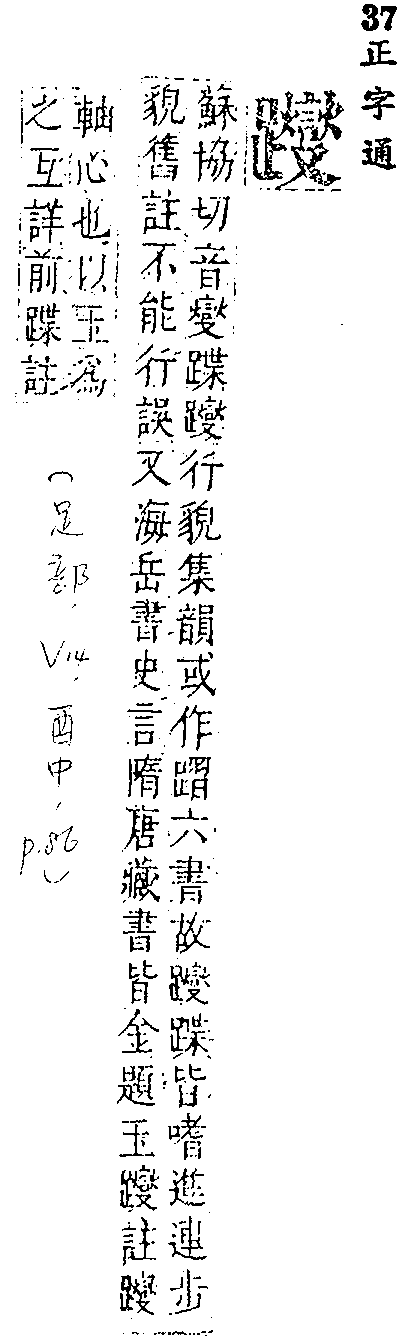 37正字通
躞
蘇協切音燮蹀躞行貌集韻或作六書故躞蹀皆嗜進連步
貌舊註不能行誤又海岳書史言隋唐藏書皆金題玉躞註躞
軸心也以玉爲
之互詳前蹀註
(足部. V14. 酉中. p.86)